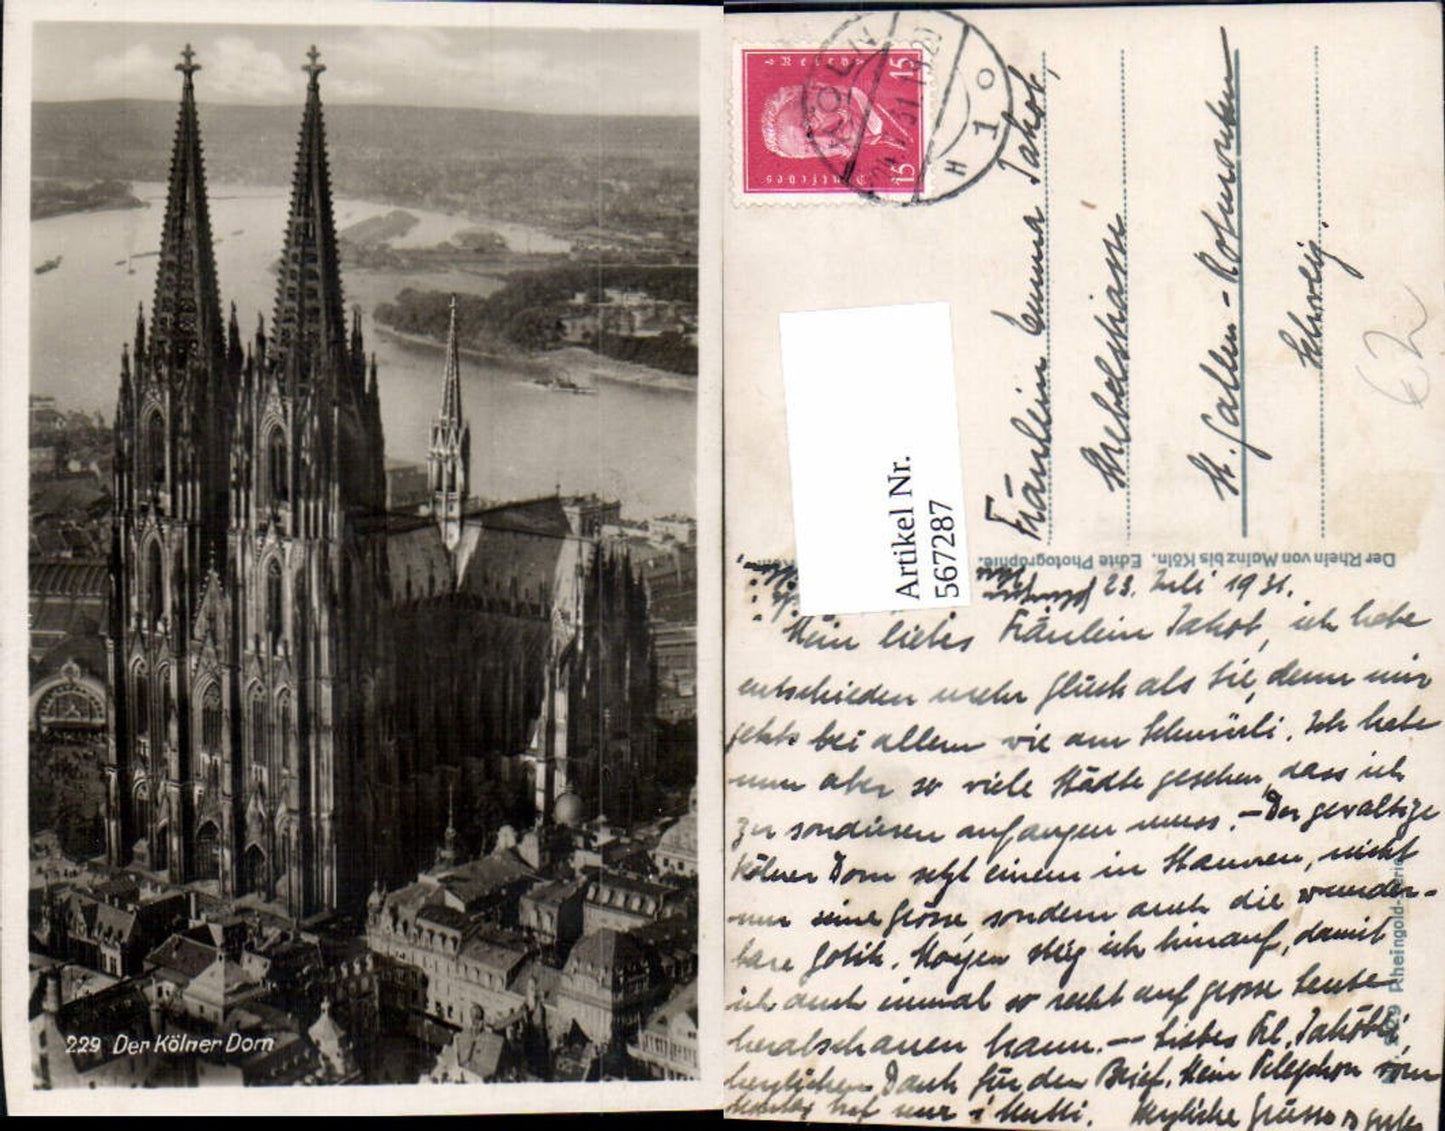 229 Der Kölner Dom
Deutsches Reich
15 15
KÖLN
H
10
Fräulein Emma Jakob,
St. Gallen - Rotmonten
Schweiz.
62
Artikel Nr.
567287
Der Rhein von Mainz bis Köln. Echte Photographie.
229 Rheingold-Serie
23. Juli 1931.
Mein liebes Fräulein Jakob, ich habe
entschieden mehr Glück als Sie, denn mir
jetzt bei allem wie am Schnürli. Ich habe
nun aber so viele Städte gesehen, dass ich
zu sondieren anfangen muss. – Der gewaltige
Kölner Dom setzt einem in Staunen, nicht
nur seine Grösse, sondern auch die wunder-
bare Gotik. Morgen steig ich hinauf, damit
ich auch einmal so recht auf grosse Leute
herabschauen kann. – Liebes Frl. Jakob,
herzlichen Dank für den Brief. Mein Telephon vom
Montag traf nur Mutti. Herzliche Grüsse